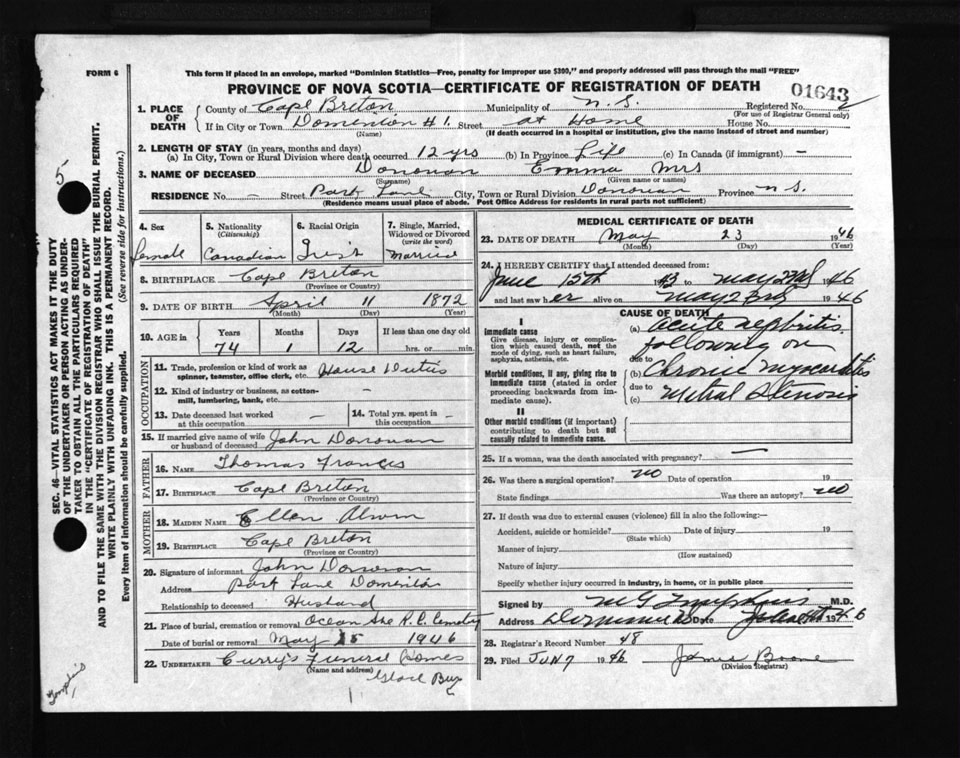 FORM 6
This form if placed in an envelope, marked "Dominion Statistics—Free, penalty for improper use $300," and properly addressed will pass through the mail "FREE"
PROVINCE OF NOVA SCOTIA—CERTIFICATE OF REGISTRATION OF DEATH
01643
1. PLACE OF DEATH
County of Cape Breton Municipality of N. S. Registered No.
(For use of Registrar General only)
If in City or Town Dominion #1. Street at Home House No.
(Name) (If death occurred in a hospital or institution, give the name instead of street and number)
2. LENGTH OF STAY (in years, months and days)
(a) In City, Town or Rural Division where death occurred 12 yrs (b) In Province Life (c) In Canada (if immigrant) —
3. NAME OF DECEASED Donovan Emma Mrs
(Surname) (Given name or names)
RESIDENCE No. — Street Park Lane City, Town or Rural Division Province N S.
(Residence means usual place of abode. Post Office Address for residents in rural parts not sufficient)
4. Sex
female
5. Nationality
(Citizenship)
Canadian
6. Racial Origin
Irish
7. Single, Married, Widowed or Divorced
(write the word)
Married
8. BIRTHPLACE Cape Breton
(Province or Country)
9. DATE OF BIRTH April 11 1872
(Month) (Day) (Year)
10. AGE in Years Months Days If less than one day old
74 1 12 hrs. or min.
OCCUPATION
11. Trade, profession or kind of work as spinner, teamster, office clerk, etc. House Duties
12. Kind of industry or business, as cotton-mill, lumbering, bank, etc. —
13. Date deceased last worked at this occupation —
14. Total yrs. spent in this occupation —
15. If married give name of wife or husband of deceased John Donovan
FATHER
16. NAME Thomas Francis
17. BIRTHPLACE Cape Breton
(Province or Country)
MOTHER
18. MAIDEN NAME Ellen
19. BIRTHPLACE Cape Breton
(Province or Country)
20. Signature of informant John Donovan
Address Park Lane Dominion
Relationship to deceased Husband
21. Place of burial, cremation or removal R. C. Cemetry
Date of burial or removal May 1946
22. UNDERTAKER Curry's Funeral Homes
(Name and address)
Glace Bay
MEDICAL CERTIFICATE OF DEATH
23. DATE OF DEATH May 23 1946
(Month) (Day) (Year)
24. I HEREBY CERTIFY that I attended deceased from:
June 15th to May 23rd 1946
and last saw her alive on May 23rd 1946
CAUSE OF DEATH
I
Immediate cause
Give disease, injury or complication which caused death, not the mode of dying, such as heart failure, asphyxia, asthenia, etc.
(a) Acute nephritis
following on
due to
Morbid conditions, if any, giving rise to immediate cause (stated in order proceeding backwards from immediate cause).
(b) Chronic myocarditis
due to
(c) Mitral Stenosis
II
Other morbid conditions (if important) contributing to death but not causally related to immediate cause.
25. If a woman, was the death associated with pregnancy? —
26. Was there a surgical operation? no Date of operation 19
State findings Was there an autopsy? no
27. If death was due to external causes (violence) fill in also the following:—
Accident, suicide or homicide? Date of injury 19
(State which)
Manner of injury
(How sustained)
Nature of injury
Specify whether injury occurred in industry, in home, or in public place
Signed by M.D.
Address Dominion Date 1946
28. Registrar's Record Number 48
29. Filed JUN 7 1946 James Boone
(Division Registrar)
5
SEC. 46—VITAL STATISTICS ACT MAKES IT THE DUTY
OF THE UNDERTAKER OR PERSON ACTING AS UNDER-
TAKER TO OBTAIN ALL THE PARTICULARS REQUIRED
IN THE "CERTIFICATE OF REGISTRATION OF DEATH"
AND TO FILE THE SAME WITH THE DIVISION REGISTRAR WHO SHALL ISSUE THE BURIAL PERMIT.
WRITE PLAINLY WITH UNFADING INK. THIS IS A PERMANENT RECORD.
Every item of information should be carefully supplied. (See reverse side for instructions.)